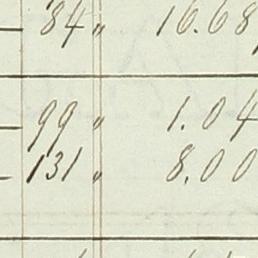 84 " 16.68
99 " 1.04
131 " 8.00